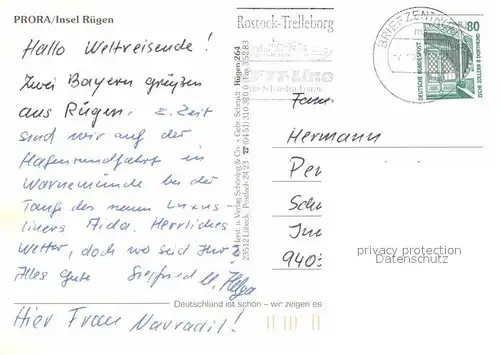 PRORA/Insel Rügen
Hallo Weltreisende!
Zwei Bayern grüßen
aus Rügen. z. Zeit
sind wir auf der
Hafenrundfahrt in
Warnemünde bei der
Taufe des neuen Luxus
liners Aida. Herrliches
Wetter, doch wo seid Ihr?
Alles Gute Siegfried u. Helga
Hier Frau Navradil!
Deutschland ist schön – wir zeigen es
Rostock-Trelleborg
BRIEFZENTRUM
80
DEUTSCHE BUNDESPOST
ZECHE ZOLLERN II DORTMUND
Fam.
Hermann
Per
Sch
940
privacy protection
Datenschutz
Rügen 264
Herst. u. Verlag Schöning & Co. + Gebr. Schmidt
23512 Lübeck, Postfach 24 23